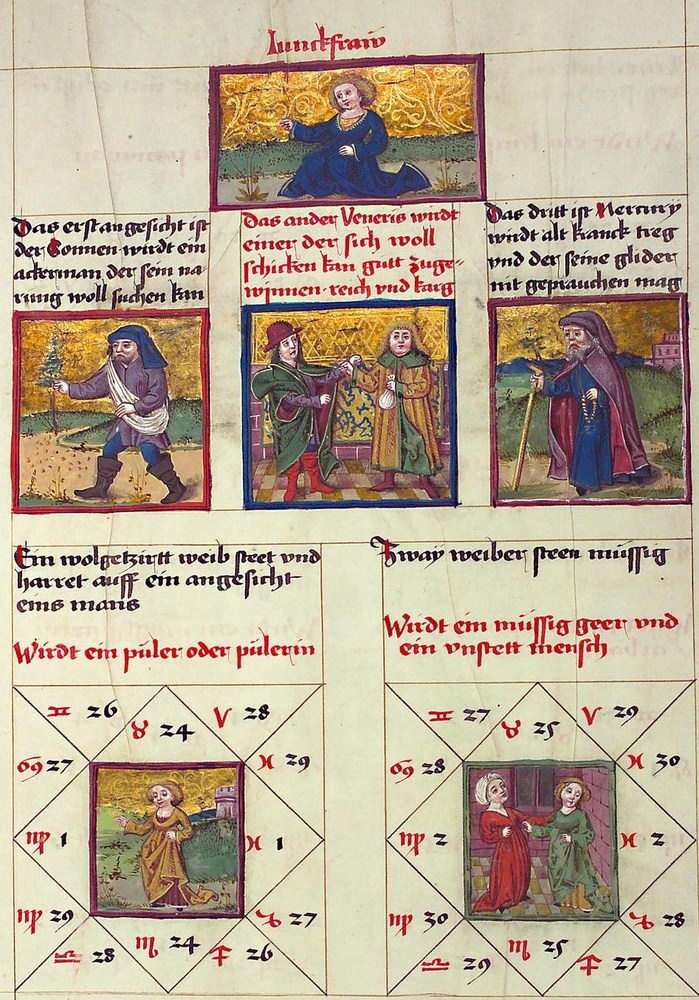 Junckfraw
Das erst angesicht ist
der Sonnen wirdt ein
ackerman der sein na-
rung woll suchen kan
Das ander Veneris wirdt
einer der sich woll
schicken kan gutt zuge-
winnen reich vnd karg
Das dritt ist Mercury
wirdt alt kranck treg
vnd der seine glider
nit geprauchen mag
Ein wolgetzirtt weib steet vnd
harret auff ein angesicht
eins mans
Wirdt ein půler oder půlerin
♊ 26
♉ 24
♈ 28
♋ 27
♓ 29
♍ 1
♓ 1
♍ 29
♑ 27
♎ 28
♏ 24
♐ 26
Zway weiber steen müssig
Wirdt ein müssig geer vnd
ein vnstett mensch
♊ 27
♉ 25
♈ 29
♋ 28
♓ 30
♍ 2
♓ 2
♍ 30
♑ 28
♎ 29
♏ 25
♐ 27